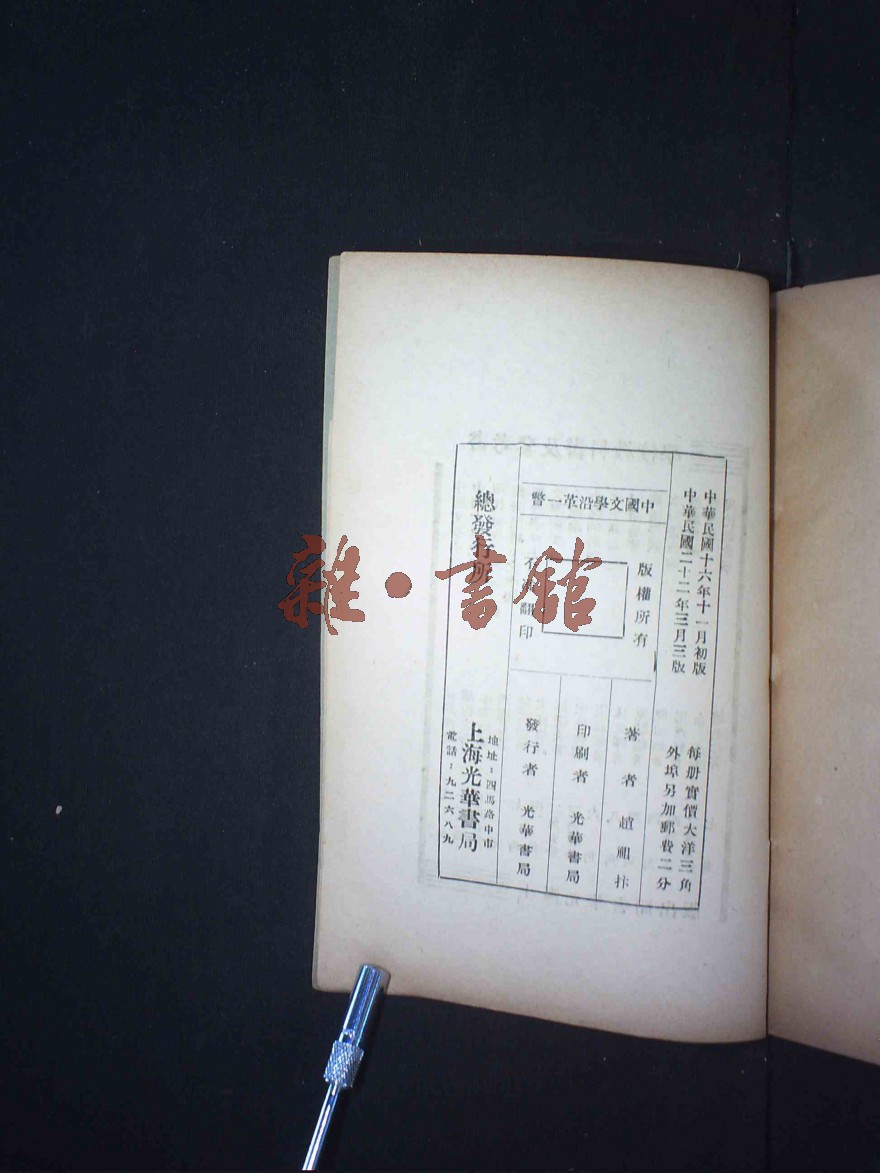 中華民國十六年十一月初版
中華民國二十二年三月三版
每册實價大洋三角
外埠另加郵費二分
中國文學沿革一瞥
版權所有
不 翻印
著者 趙祖抃
印刷者 光華書局
發行者 光華書局
總發行所
地址：四馬路中市
上海光華書局
電話：九二六八九
雜·書館